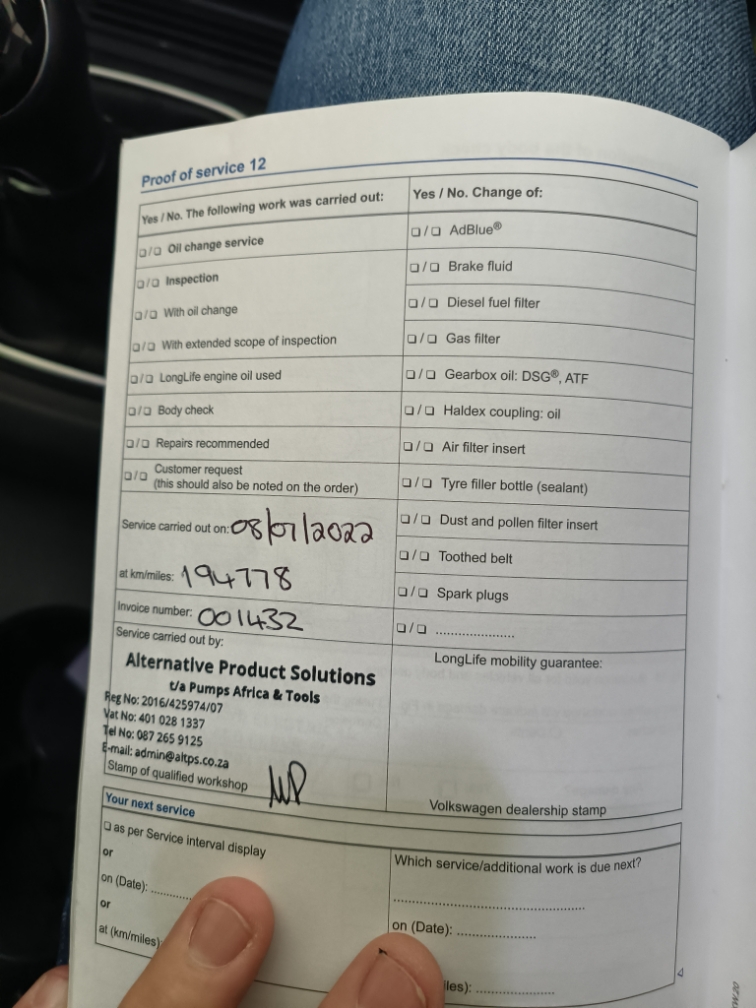 Proof of service 12
Yes / No. The following work was carried out:
❏/❏ Oil change service
❏/❏ Inspection
❏/❏ With oil change
❏/❏ With extended scope of inspection
❏/❏ LongLife engine oil used
❏/❏ Body check
❏/❏ Repairs recommended
❏/❏ Customer request
(this should also be noted on the order)
Service carried out on: 08/07/2022
at km/miles: 194778
Invoice number: 001432
Service carried out by:
Alternative Product Solutions
t/a Pumps Africa & Tools
Reg No: 2016/425974/07
Vat No: 401 028 1337
Tel No: 087 265 9125
E-mail: admin@altps.co.za
Stamp of qualified workshop
Yes / No. Change of:
❏/❏ AdBlue®
❏/❏ Brake fluid
❏/❏ Diesel fuel filter
❏/❏ Gas filter
❏/❏ Gearbox oil: DSG®, ATF
❏/❏ Haldex coupling: oil
❏/❏ Air filter insert
❏/❏ Tyre filler bottle (sealant)
❏/❏ Dust and pollen filter insert
❏/❏ Toothed belt
❏/❏ Spark plugs
❏/❏ .....................
LongLife mobility guarantee:
Volkswagen dealership stamp
Your next service
❏ as per Service interval display
or
on (Date): ..........
or
at (km/miles)
Which service/additional work is due next?
..................................................
on (Date): .....................
les): .....................